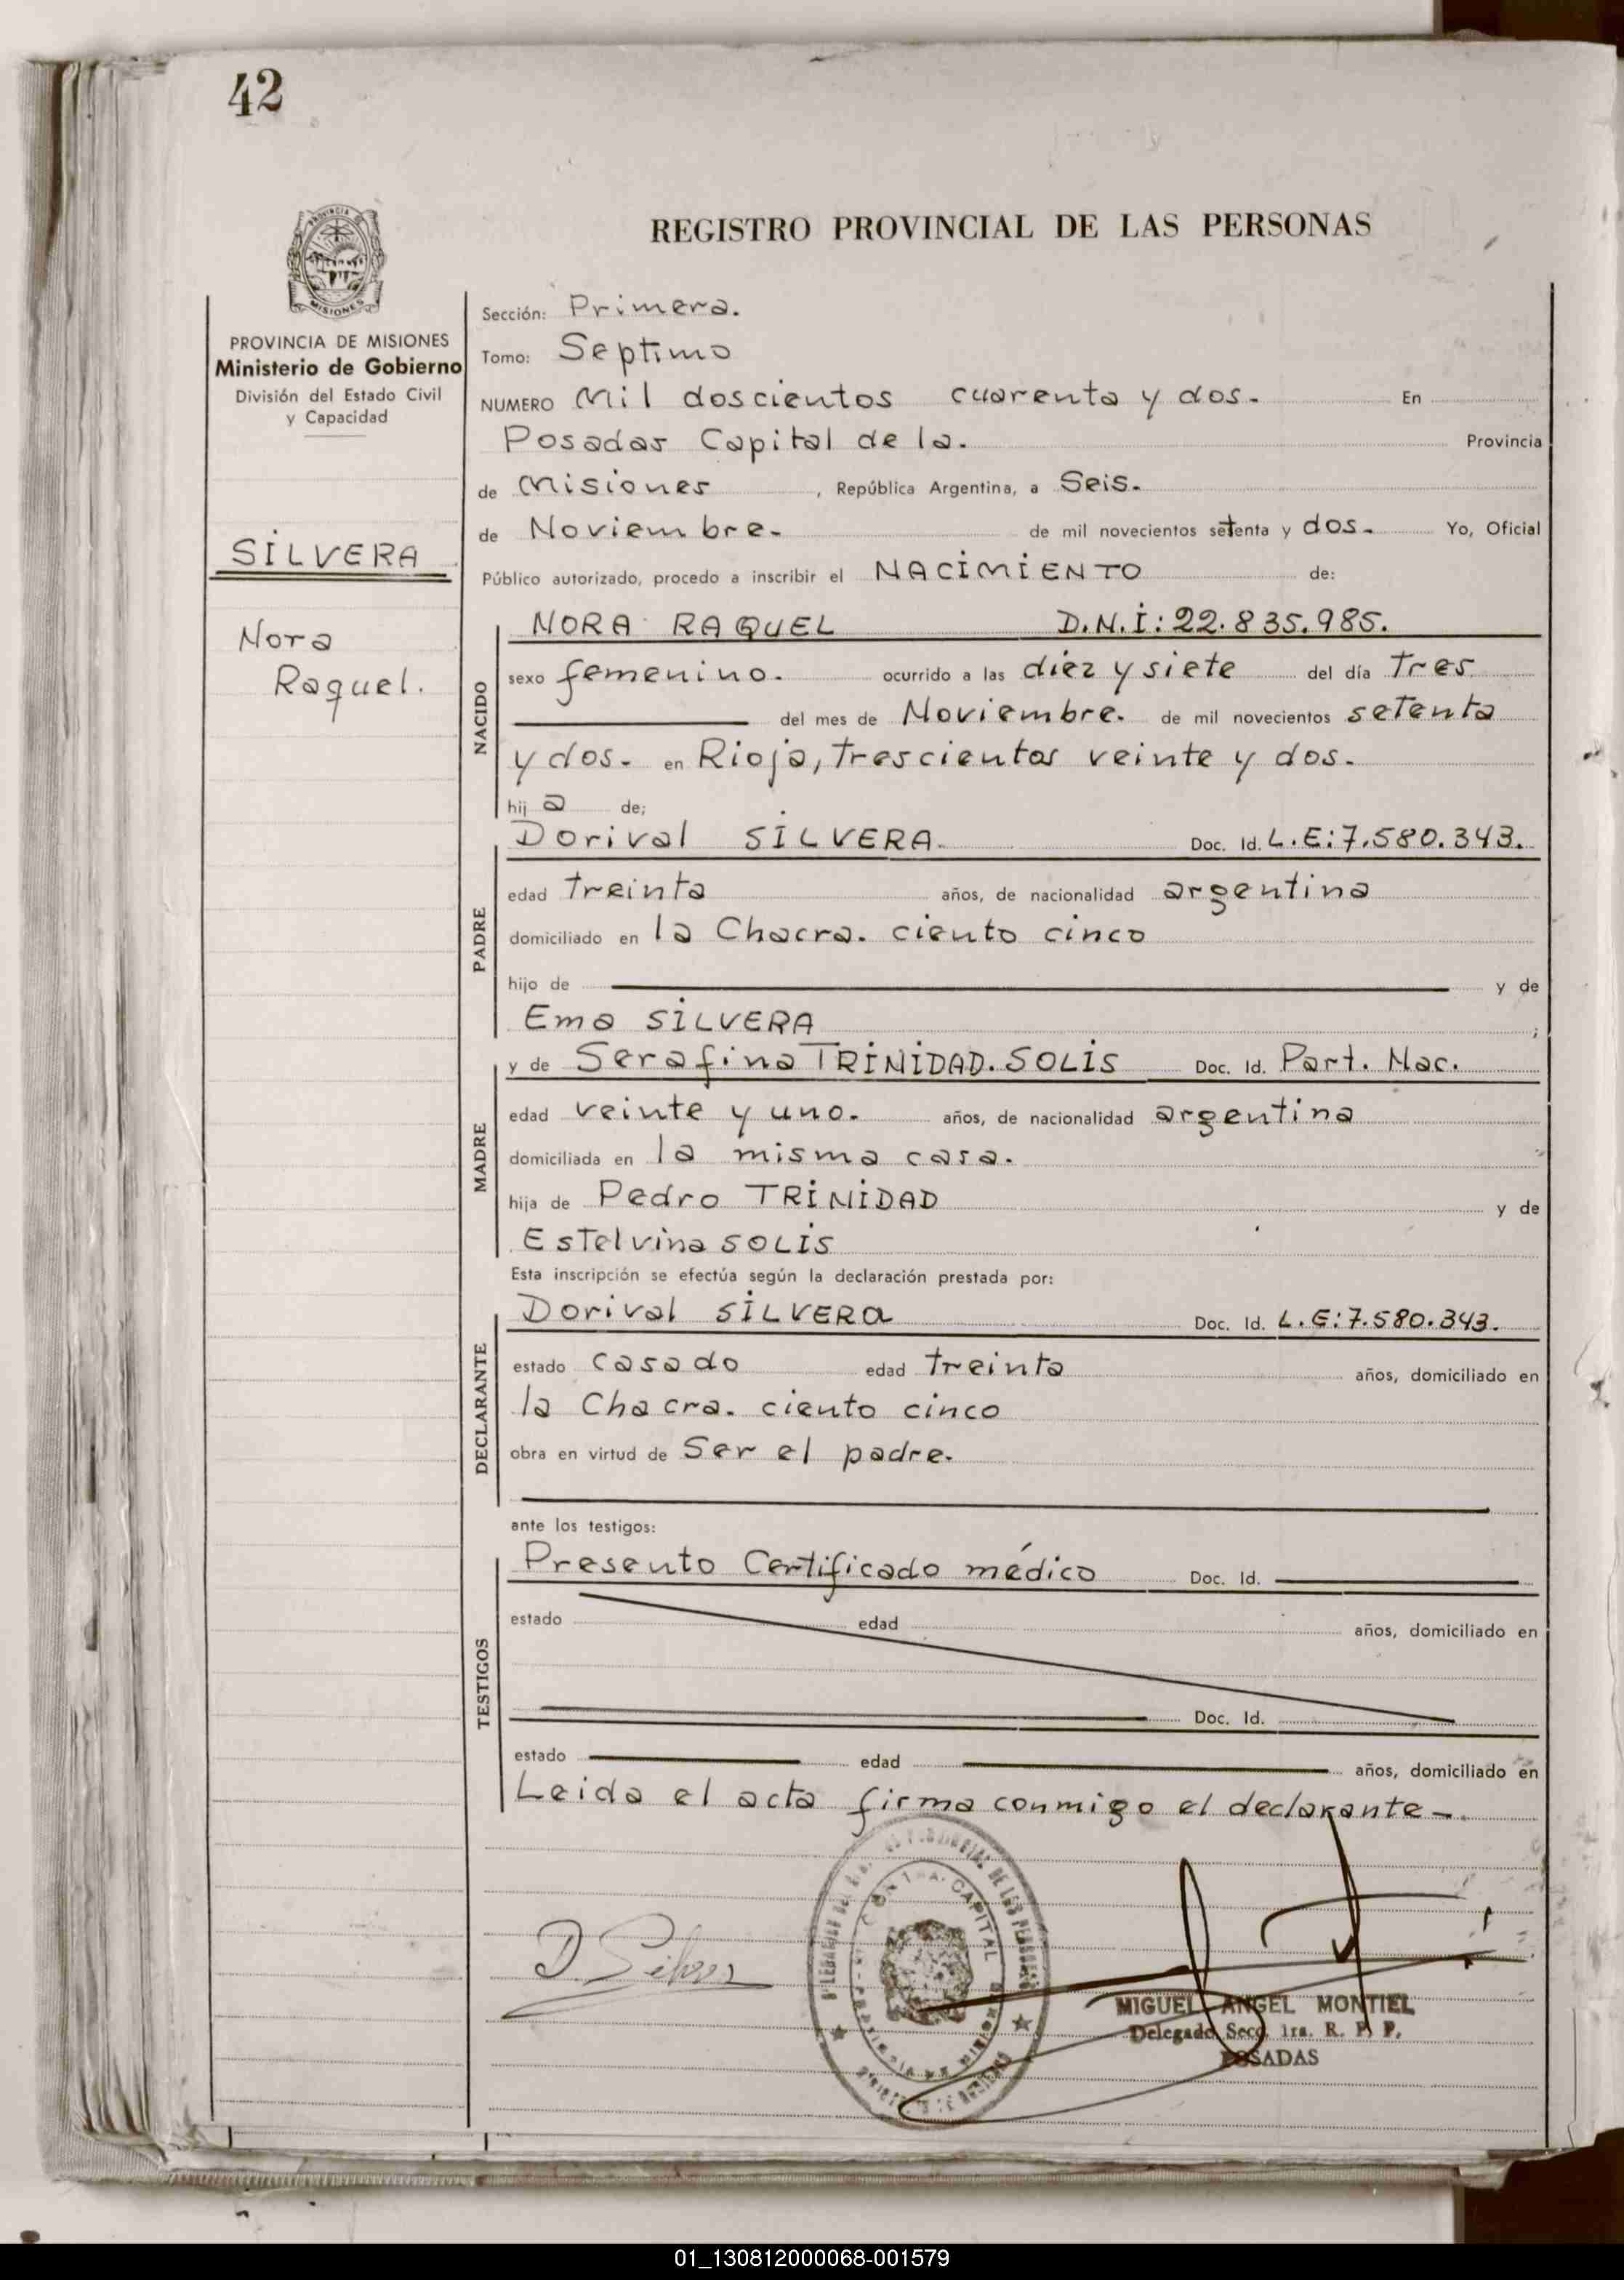 42
PROVINCIA DE
MISIONES
REGISTRO PROVINCIAL DE LAS PERSONAS
PROVINCIA DE MISIONES
Ministerio de Gobierno
División del Estado Civil
y Capacidad
SILVERA
Nora
Raquel.
Sección: Primera.
Tomo: Septimo
NUMERO Mil doscientos cuarenta y dos. En
Posadas Capital de la. Provincia
de Misiones , República Argentina, a Seis.
de Noviembre. de mil novecientos setenta y dos. Yo, Oficial
Público autorizado, procedo a inscribir el NACIMIENTO de:
NACIDO
NORA RAQUEL D.N.I: 22.835.985.
sexo femenino. ocurrido a las diez y siete del día Tres
del mes de Noviembre. de mil novecientos setenta
y dos. en Rioja, Trescientos veinte y dos.
hij a de;
PADRE
Dorival SILVERA. Doc. Id. L.E:7.580.343.
edad Treinta años, de nacionalidad argentina
domiciliado en la Chacra. ciento cinco
hijo de y de
Ema SILVERA ;
MADRE
y de Serafina TRINIDAD. SOLIS Doc. Id. Part. Nac.
edad veinte y uno. años, de nacionalidad argentina
domiciliada en la misma casa.
hija de Pedro TRINIDAD y de
Estelvina SOLIS
Esta inscripción se efectúa según la declaración prestada por:
DECLARANTE
Dorival SILVERA Doc. Id. L.E:7.580.343.
estado casado edad Treinta años, domiciliado en
la Chacra. ciento cinco
obra en virtud de Ser el padre.
ante los testigos:
TESTIGOS
Presento Certificado médico Doc. Id.
estado edad años, domiciliado en
Doc. Id.
estado edad años, domiciliado en
Leida el acta firma conmigo el declarante-.
D. Silvera
CAPITAL
MIGUEL ANGEL MONTIEL
Delegado Secc. 1ra. R. P. P.
POSADAS
01_130812000068-001579